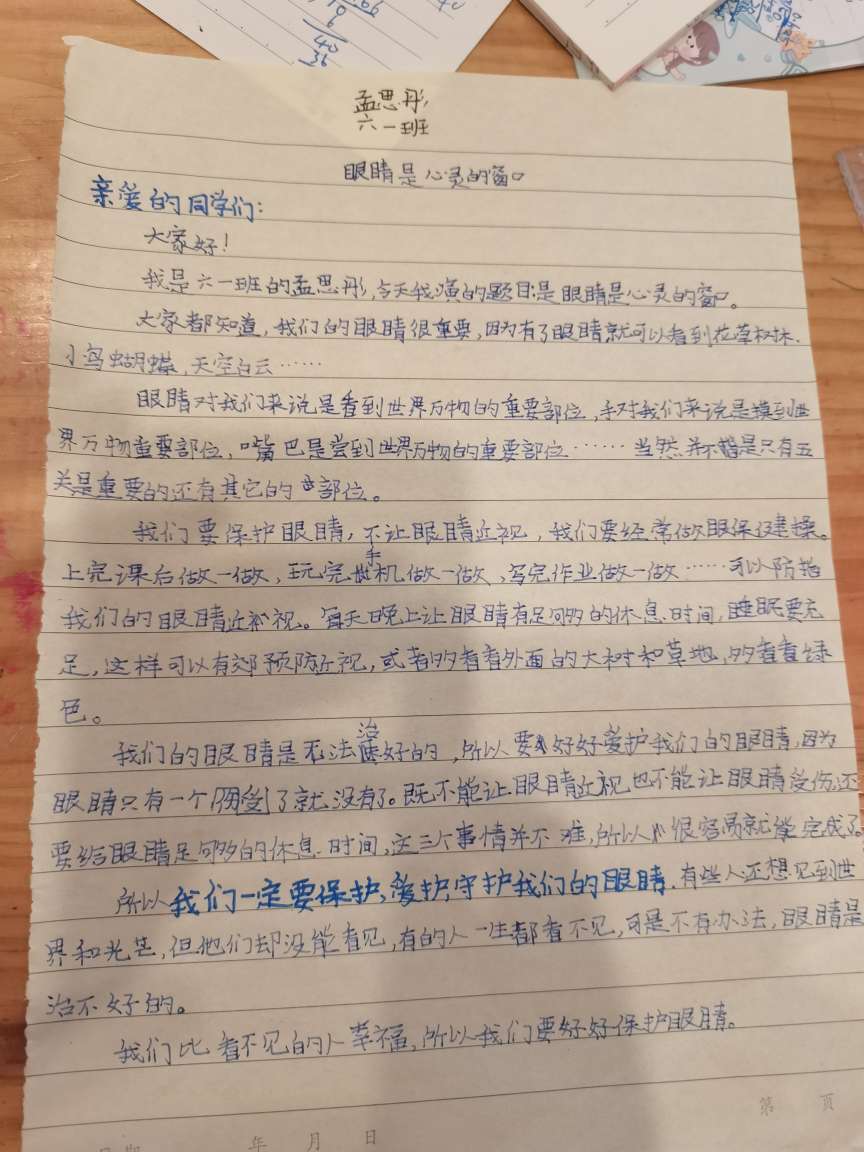 孟思彤
六一班
眼睛是心灵的窗口
亲爱的同学们：
大家好！
我是六一班的孟思彤,今天我演的题目是眼睛是心灵的窗口。
大家都知道，我们的眼睛很重要，因为有了眼睛就可以看到花草树木.
小鸟蝴蝶，天空白云……
眼睛对我们来说是看到世界万物的重要部位，手对我们来说是摸到世
界万物重要部位，嘴巴是尝到世界万物的重要部位……当然并不指是只有五
关是重要的还有其它的部位。
我们要保护眼睛，不让眼睛近视，我们要经常做眼保健操。
上完课后做一做，玩完手机做一做、写完作业做一做……可以防指
我们的眼睛近视。每天晚上让眼睛有足够的休息时间，睡眠要充
足，这样可以有效预防近视，或者多看看外面的大树和草地，多看看绿
色。
我们的眼睛是无法治好的，所以要好好爱护我们的眼睛，因为
眼睛只有一个了就没有了。既不能让眼睛近视也不能让眼睛受伤，还
要给眼睛足够的休息时间，这三个事情并不难，所以很容易就能完成了。
所以我们一定要保护、爱护,守护我们的眼睛，有些人还想见到世
界和光芒，但他们却没能看见，有的人一生都看不见，可是不有办法，眼睛是
治不好的。
我们比看不见的人幸福，所以我们要好好保护眼睛。
年 月 日
第 页